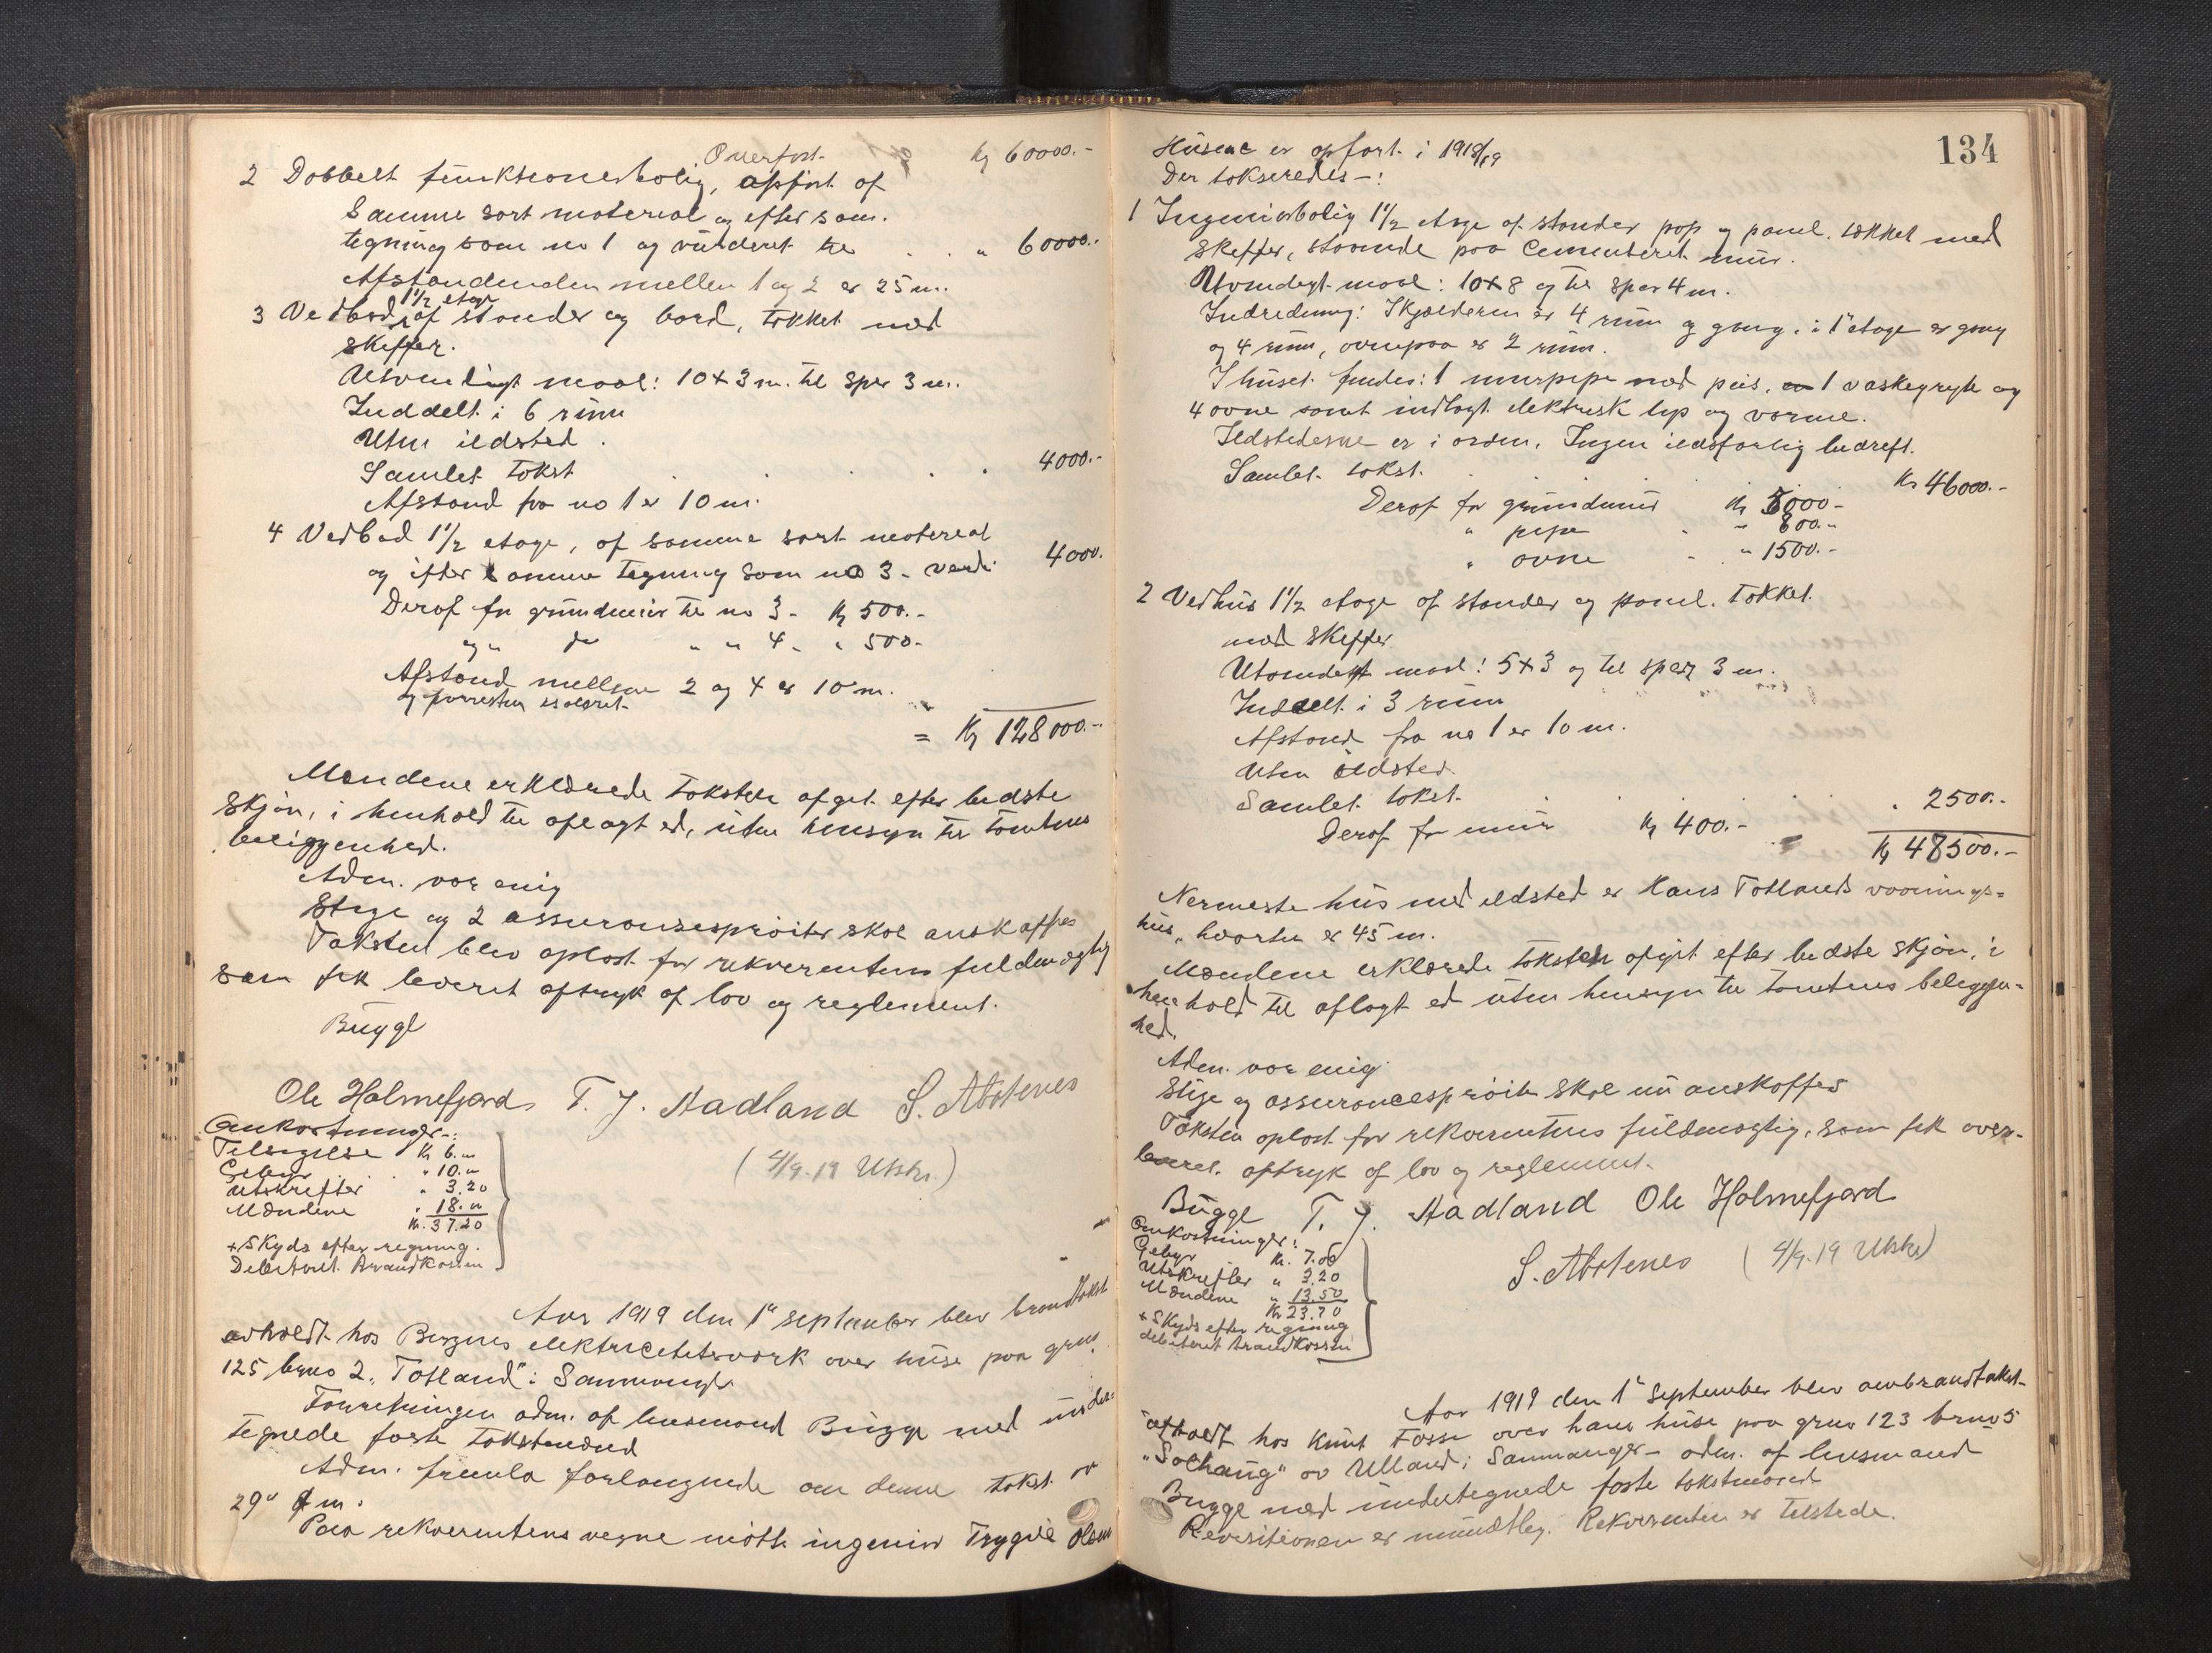 Overført Kr 60000.-
2 Dobbelt funktionærbolig, opført af
samme sort material og efter sam.
tegning som no 1 og vurderet til . . " 60000.-
Afstanden mellem 1 og 2 er 25 m.
1 1/2 etage
3 Vedbod, af stender og bord, tækket med
skiffer.
Utvendigt maal: 10 x 3 m. til spær 3 m.
Inddelt i 6 rum
Uten ildsted.
Samlet takst . . . . 4000.-
Afstand fra no 1 er 10 m.
4 Vedbod 1 1/2 etage, af samme sort material
og efter samme tegning som no 3 - verdi 4000.
Deraf for grundmur til no 3 - Kr 500.-
og " do " " 4 - " 500.-
Afstand mellem 2 og 4 er 10 m.
og forresten isoleret.
= Kr 128000.-
Mændene erklærede taksten afgit efter bedste
skjøn, i henhold til aflagt ed, uten hensyn til tomtens
beliggenhed.
Adm. var enig
Stige og 2 assuransesprøiter skal anskaffes
Taksten blev oplæst for rekvirentens fuldmægtig
som fik leveret aftryk af lov og reglement.
Bügge
Ole Holmefjord T. J. Aadland S. Abotenes
(4/9.19 Utskr.)
Omkostninger:
Tilsigelse Kr 6.00
Gebyr . . " 10.00
Utskrifter " 3.20
Mændene " 18.00
Kr. 37.20
+ Skyds efter regning.
Debiteret Brandkassen
Aar 1919 den 1ste september blev brandtakst
avholdt hos Bergens elektricitetsverk over huse paa grno
125 brno 2, "Totland" i Samnanger
Forretningen adm. af lensmand Bügge med under-
tegnede faste takstmænd
Adm. fremla forlangende om denne takst av
29de f.m.
Paa rekvirentens vegne møtte ingeniør Trygve Olsen
134
Husene er opført i 1918/19
Der takseredes -:
1 Ingeniørbolig 1 1/2 etage af stender pap og panel, tækket med
skiffer, staaende paa cementeret mur.
Utvendigt maal: 10 x 8 og til spær 4 m.
Indredning: I kjælderen er 4 rum og gang, i 1ste etage er gang
og 4 rum, ovenpaa er 2 rum.
I huset findes: 1 murpipe med peis, 1 vaskegryte og
4 ovne samt indlagt elektrisk lys og varme.
Ildstederne er i orden. Ingen ildsfarlig bedrift.
Samlet takst. Kr 46000.-
Deraf for grundmur Kr 5000.-
" pipe . " 800.-
" ovne . " 1500.-
2 Vedhus 1 1/2 etage af stender og panel. Tækket
med skiffer
Utvendigt maal: 5 x 3 og til spær 3 m.
Inddelt i 3 rum
Afstand fra no 1 er 10 m.
Uten ildsted
Samlet takst. . . . . " 2500.-
Deraf for mur Kr 400.-
Kr 48500.-
Nærmeste hus med ildsted er Hans Totlands vaanings-
hus, hvortil er 45 m.
Mændene erklærede taksten afgit efter bedste skjøn, i
henhold til aflagt ed uten hensyn til tomtens beliggen-
hed.
Adm. var enig.
Stige og assurancesprøite skal nu anskaffes
Taksten oplæst for rekvirentens fuldmægtig, som fik over-
leveret aftryk af lov og reglement.
Bügge T. J. Aadland Ole Holmefjord
S. Abotenes (4/9.19 Utskr)
Omkostninger:
Gebyr Kr. 7.00
Utskrifter " 3.20
Mændene " 13.50
Kr 23.70
+ Skyds efter regning
debiteret brandkassen
Aar 1919 den 1ste September blev ombrandtakst
afholdt hos Knut Fosse over hans huse paa grno 123 brno 5
"Solhaug" av Ulland i Samnanger - adm. af lensmand
Bugge med undertegnede faste takstmænd
Revisitionen er mundtlig. Rekvirenten er tilstede.